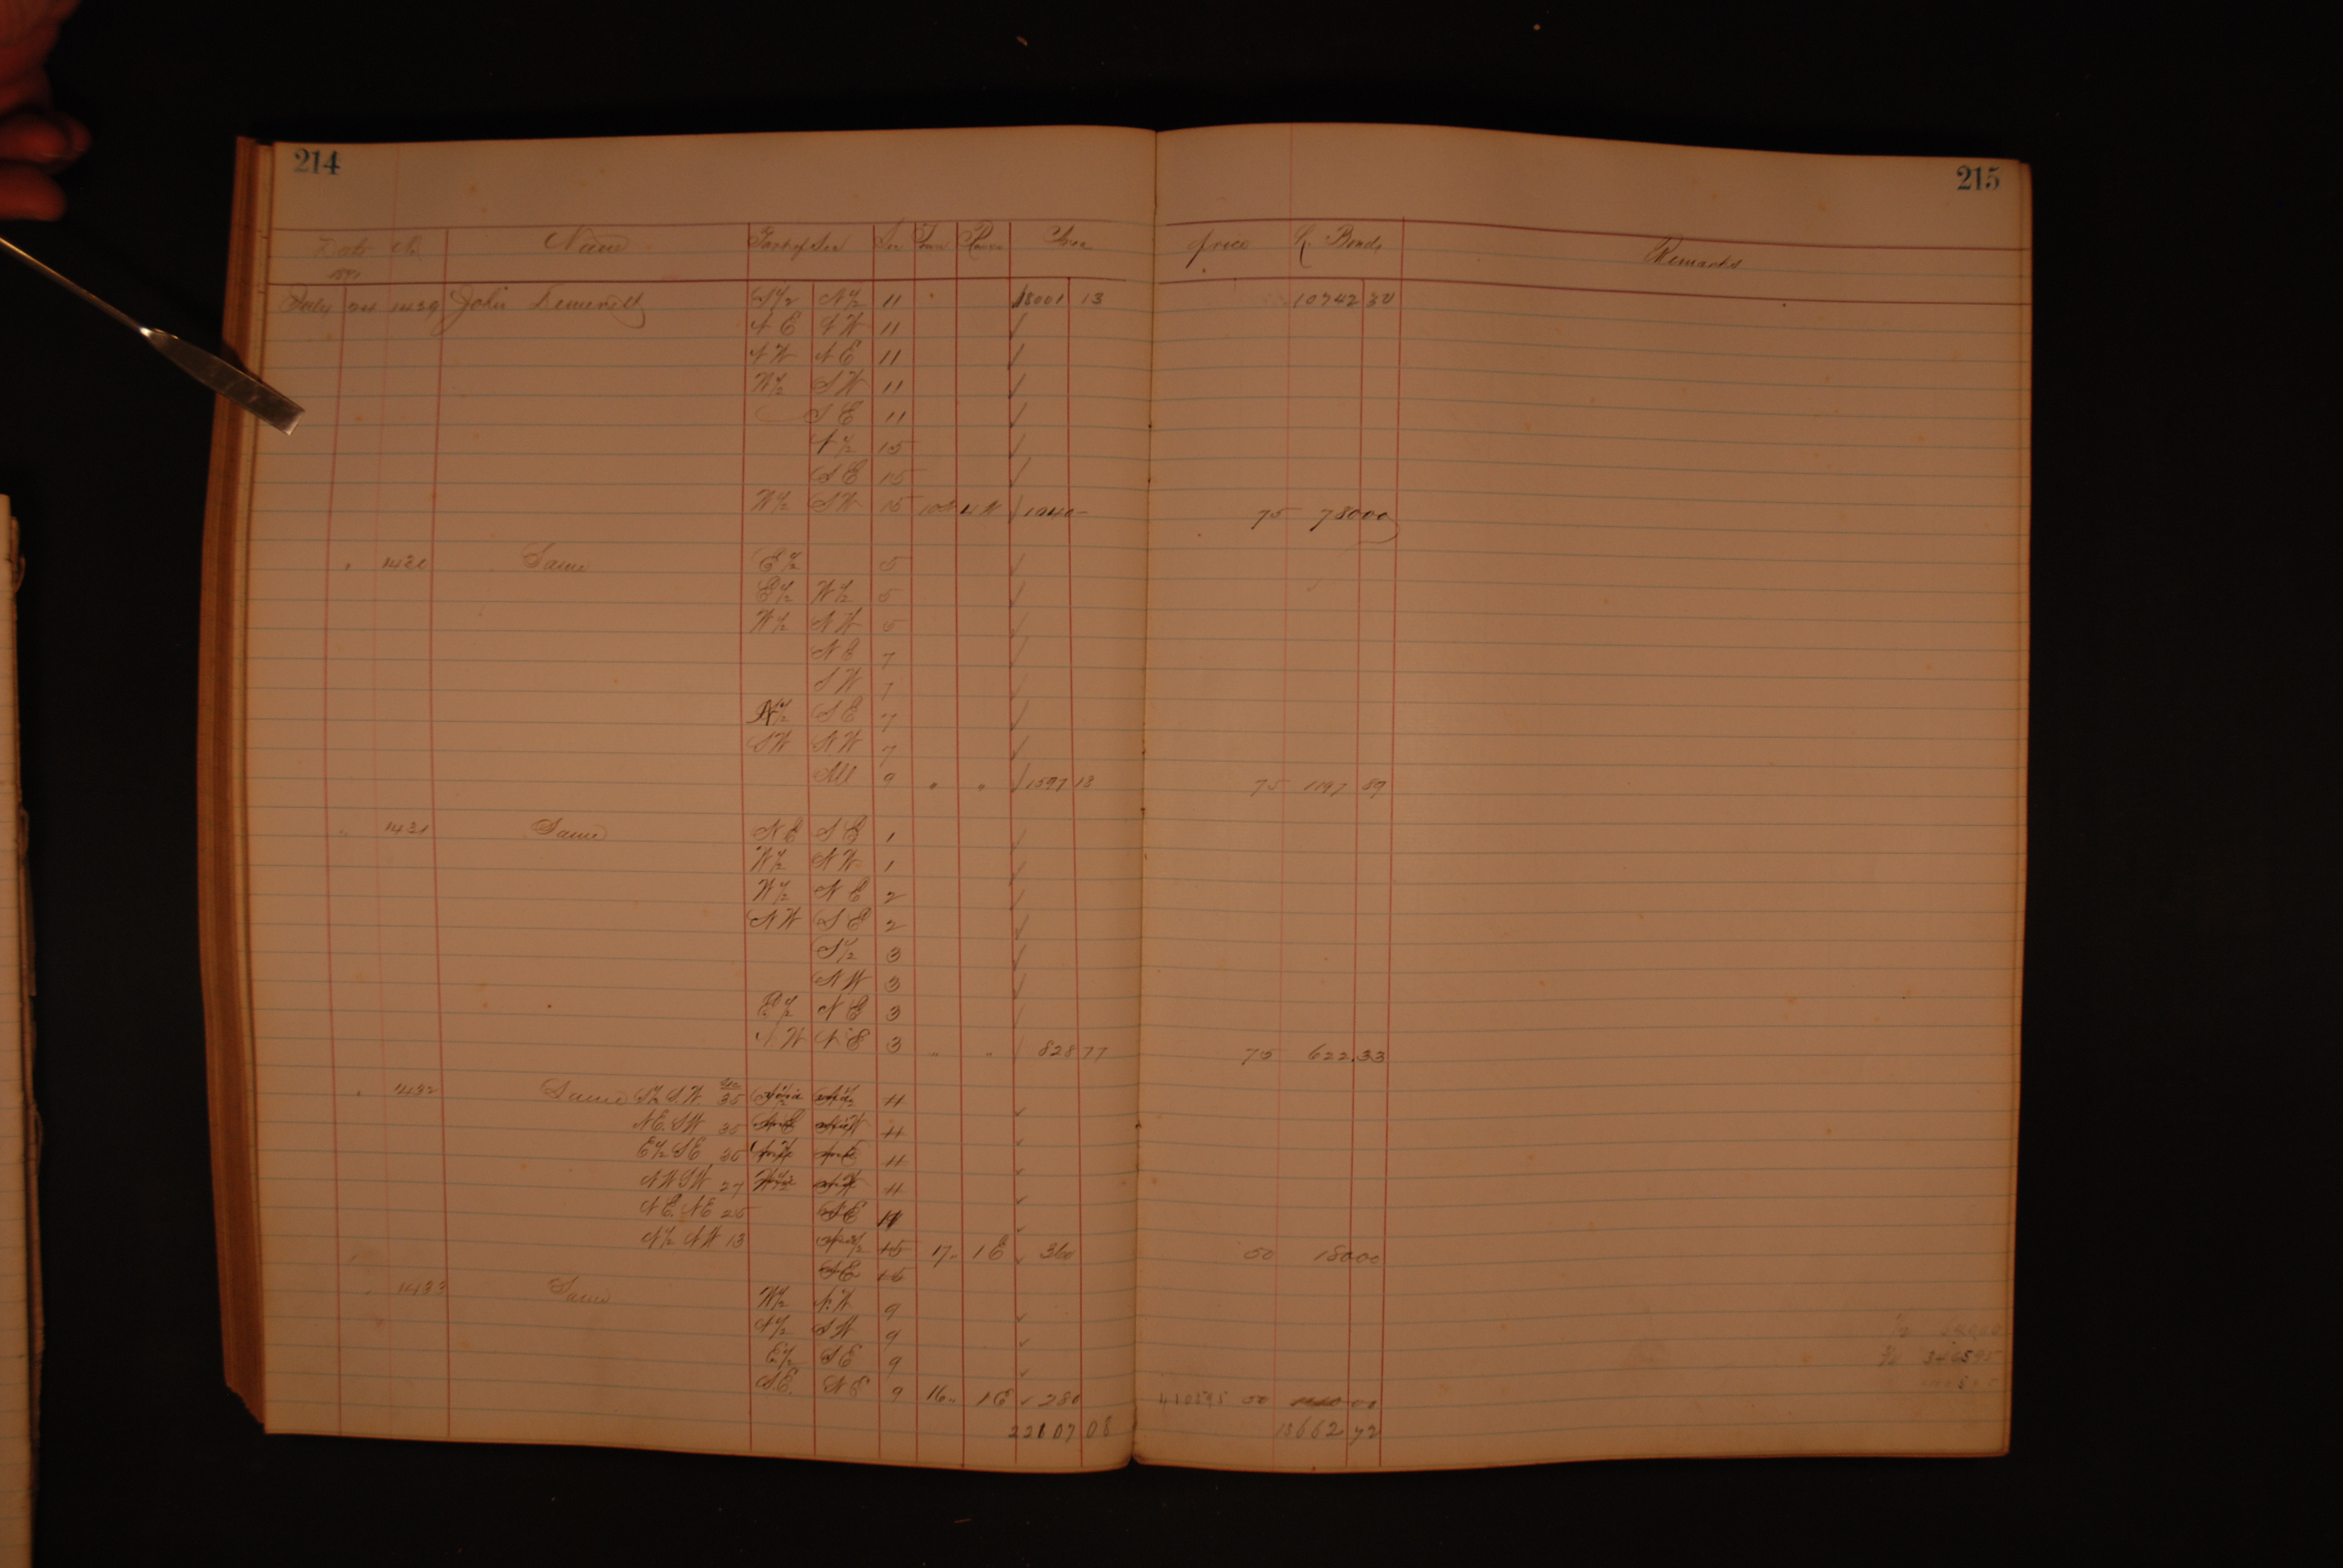 214
215
Date No. Name Part of Sec Sec Town Range Area price Bonds Remarks
July 24 1429 John S½ N½ 11 18001 13 10742 30
N E N W 11
N W N E 11
W½ S W 11
S E 11
N½ 15
S E 15
W½ S W 15 4 W 1040- 75 78000
" 1430 Same E½ 5
E½ W½ 5
W½ N W 5
N E 7
S W 7
N½ S E 7
S W N W 7
All 9 " " 1597 13 75 1197 89
" 1431 Same N E S E 1
W½ N W 1
W½ N E 2
N W S E 2
S½ 3
N W 3
E½ N E 3
N W N E 3 " " 828 77 75 622.33
" 1432 Same S½ S.W 35 11
N E. S W 35 11
E½ S E 11
N W S W 27 W½ 11
N E. N E 25 S E 11
N½ N W 13 15 17 " 1 E 360 50 18000
S E 15
" 1433 Same W½ N. W 9
N½ S W 9
E½ S E 9
S.E. N E 9 16 " 1 E 280 50
22107 08 13662 72